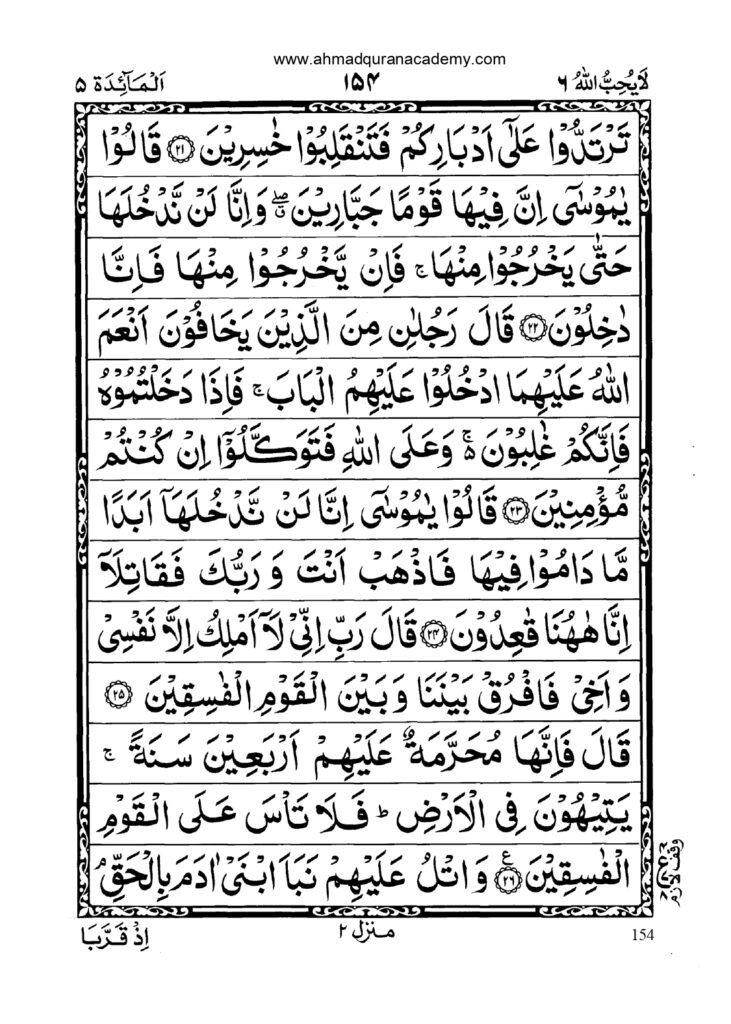 www.ahmadquranacademy.com
لَا يُحِبُّ اللّٰهُ ۶ ۱۵۴ اَلْمَآئِدَة ۵
تَرْتَدُّوْا عَلٰٓى اَدْبَارِكُمْ فَتَنْقَلِبُوْا خٰسِرِيْنَ ﴿۲۱﴾ قَالُوْا
يٰمُوْسٰٓى اِنَّ فِيْهَا قَوْمًا جَبَّارِيْنَ ۖۗ وَاِنَّا لَنْ نَّدْخُلَهَا
حَتّٰى يَخْرُجُوْا مِنْهَا ۚ فَاِنْ يَّخْرُجُوْا مِنْهَا فَاِنَّا
دٰخِلُوْنَ ﴿۲۲﴾ قَالَ رَجُلٰنِ مِنَ الَّذِيْنَ يَخَافُوْنَ اَنْعَمَ
اللّٰهُ عَلَيْهِمَا ادْخُلُوْا عَلَيْهِمُ الْبَابَ ۚ فَاِذَا دَخَلْتُمُوْهُ
فَاِنَّكُمْ غٰلِبُوْنَ ۚ۬ وَعَلَى اللّٰهِ فَتَوَكَّلُوْٓا اِنْ كُنْتُمْ
مُّؤْمِنِيْنَ ﴿۲۳﴾ قَالُوْا يٰمُوْسٰٓى اِنَّا لَنْ نَّدْخُلَهَآ اَبَدًا
مَّا دَامُوْا فِيْهَا فَاذْهَبْ اَنْتَ وَرَبُّكَ فَقَاتِلَآ
اِنَّا هٰهُنَا قٰعِدُوْنَ ﴿۲۴﴾ قَالَ رَبِّ اِنِّىْ لَآ اَمْلِكُ اِلَّا نَفْسِىْ
وَاَخِىْ فَافْرُقْ بَيْنَنَا وَبَيْنَ الْقَوْمِ الْفٰسِقِيْنَ ﴿۲۵﴾
قَالَ فَاِنَّهَا مُحَرَّمَةٌ عَلَيْهِمْ اَرْبَعِيْنَ سَنَةً ۚ
يَتِيْهُوْنَ فِى الْاَرْضِ ؕ فَلَا تَاْسَ عَلَى الْقَوْمِ
الْفٰسِقِيْنَ ﴿۲۶﴾ ع وَاتْلُ عَلَيْهِمْ نَبَاَ ابْنَىْ اٰدَمَ بِالْحَقِّ ۘ
وقف لازم
اِذْ قَرَّبَا منزل ۲ 154